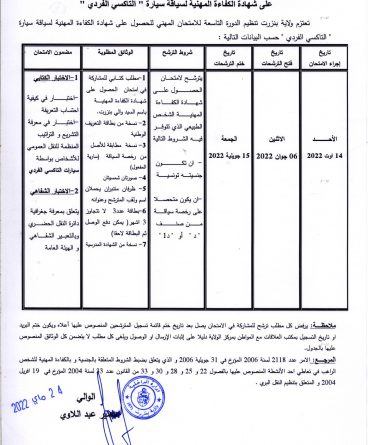 على شهادة الكفاءة المهنية لسياقة سيارة " التاكسي الفردي "
تعتزم ولاية بنزرت تنظيم الدورة التاسعة للامتحان المهني للحصول على شهادة الكفاءة المهنية لسياقة سيارة
" التاكسي الفردي " حسب البيانات التالية :
تاريخ
إجراء الامتحان
تاريخ
فتح الترشحات
تاريخ
ختم الترشحات
شروط الترشح
الوثائق المطلوبة
مضمون الامتحان
الأحـــد
14 أوت 2022
الاثنين
06 جوان 2022
الجمعة
15 جويلية 2022
يترشح لامتحان
الحصول على
شهادة الكفاءة
المهنية الشخص
الطبيعي الذي تتوفر
فيه الشروط التالية
- ان تكون
جنسيته تونسية
-ان يكون متحصلا
على رخصة سياقة
من صنف
"د" أو "د1"
1-مطلب كتابي للمشاركة
في امتحان الحصول على
شهادة الكفاءة المهنية
باسم السيد والي بنزرت
2- نسخة من بطاقة التعريف
الوطنية
3- نسخة مطابقة للأصل
من رخصة السياقة (سارية
المفعول)
4- صورتان شمسيتان
5- ظرفان متنبران يحملان
اسم ولقب المترشح وعنوانه
6- بطاقة عدد3 لا تتجاوز
3 اشهر( يمكن دفع الوصل
ثم البطاقة لاحقا)
7- نسخة من الشهادة المدرسية
1-الاختبار الكتابي
-اختبار في كيفية
احتساب التعريفة
-اختبار في معرفة
التشريع و التراتيب
المنظمة للنقل العمومي
للأشخاص بواسطة
سيارات التاكسي الفردي
2-الاختبار الشفاهي
يتعلق بمعرفة جغرافية
دائرة النقل الحضري
وبالتعبير الشفاهي
و الهيئة العامة
ملاحظة: يرفض كل مطلب ترشح للمشاركة في الامتحان يصل بعد تاريخ ختم قائمة تسجيل المترشحين المنصوص عليها أعلاه ويكون ختم البريد
او تاريخ التسجيل بمكتب العلاقات مع المواطن بمركز الولاية دليلا على إثبات الإرسال او الوصول ويلغى كل مطلب لا يتضمن كل الوثائق المنصوص
عليها بالجدول.
المرجع: الامر عدد 2118 لسنة 2006 المؤرخ في 31 جويلية 2006 و الذي يتعلق بضبط الشروط المتعلقة بالجنسية و بالكفاءة المهنية للشخص
الراغب في تعاطي احد الأنشطة المنصوص عليها بالفصول 22 و 25 و 28 و 30 و 33 من القانون عدد 33 لسنة 2004 المؤرخ في 19 افريل
2004 و المتعلق بتنظيم النقل البري .
24 ماي 2022
الوالي
عبد اللاوي